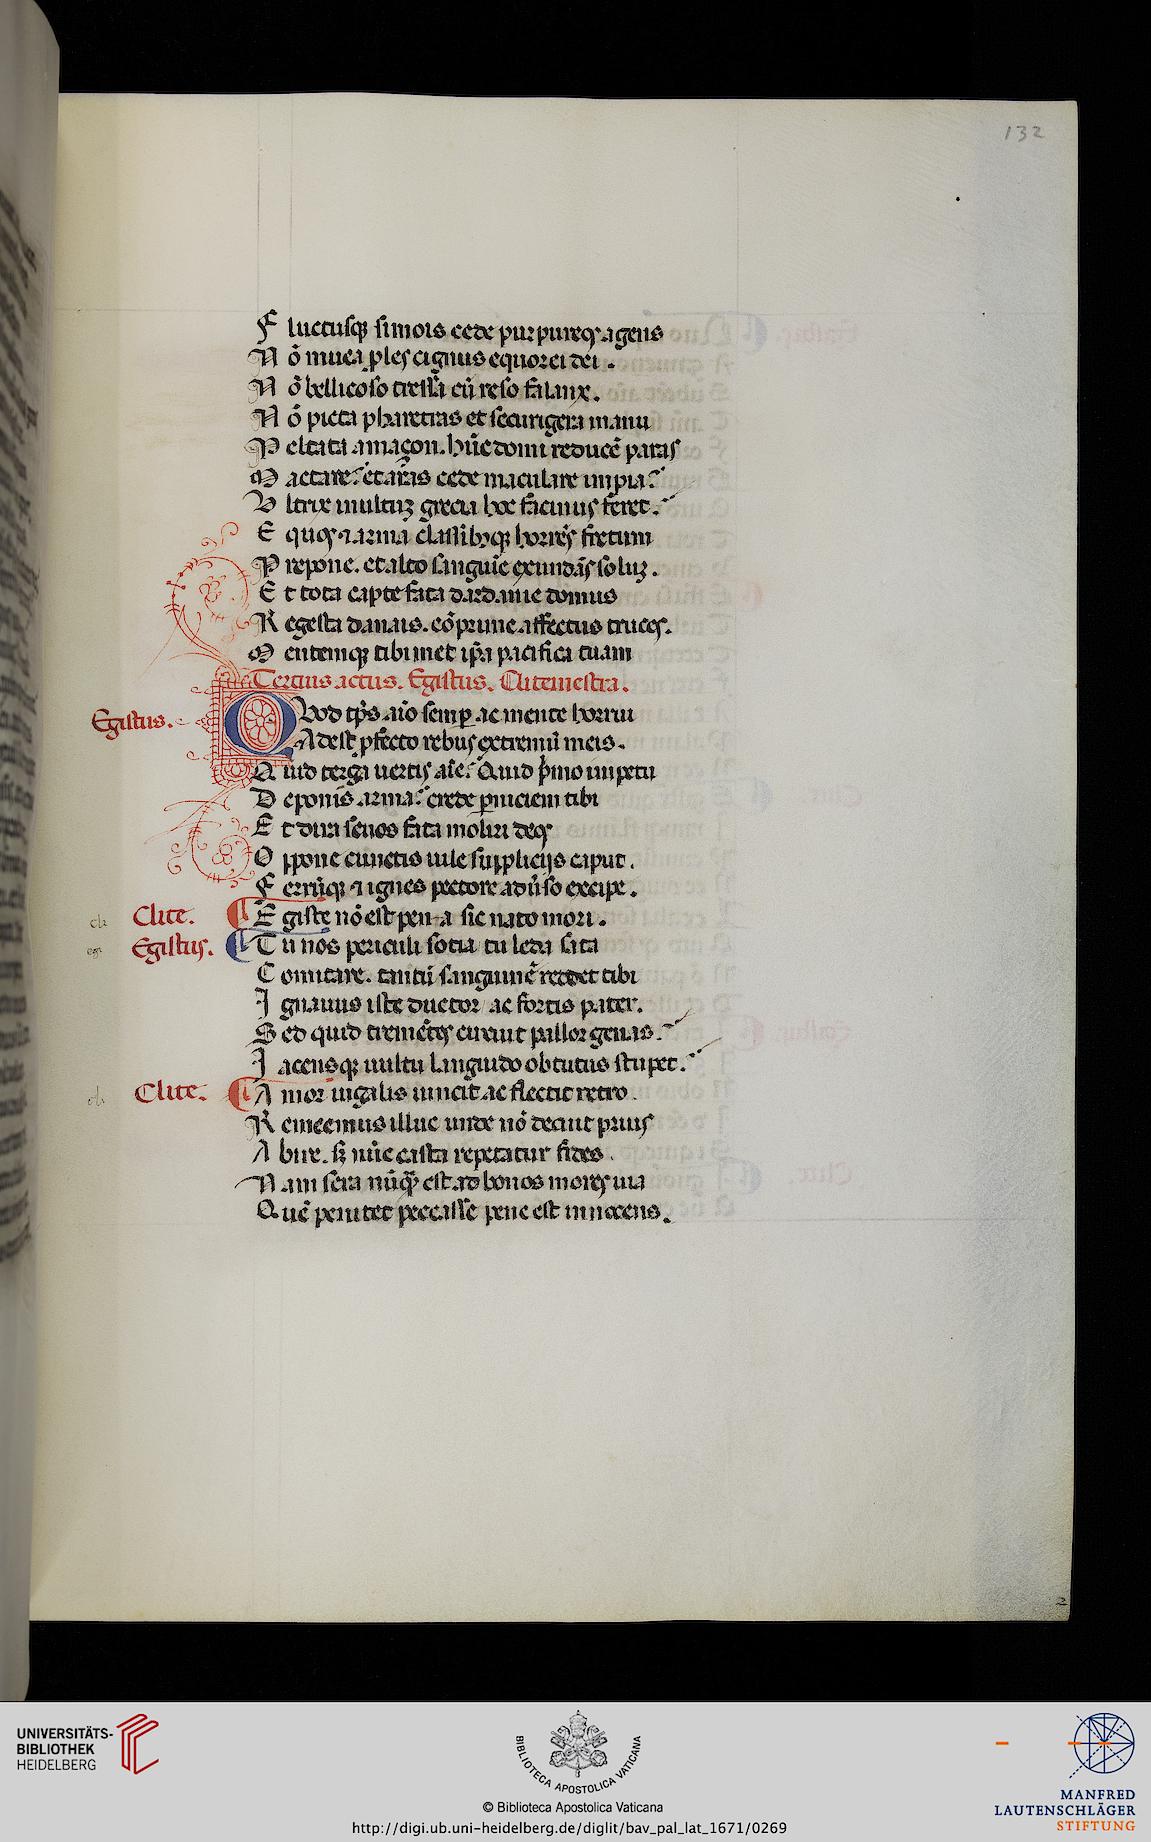 132
Fluctusqꝫ simois cede purpureꝙ agens
Nō niuea ples cignus equorei dei .
Nō bellicoso tressa cū reso falanx .
Nō picta pharetras et securigera manu
Peltata amaçon . hūc domi reducē paras
Mactare . et aras cede maculare impia
Vltrix multuꝫ grecia hoc facinus feret .
Equos ⁊ arma classibꝫqꝫ horrēs fretum
Prepone . et alto sanguīe exundās soluꝫ .
Et tota capte fata dardanie domus
Regesta danais . cōprime affectus truces .
Mentemqꝫ tibimet ip̄a pacifica tuam
Tercius actus . Egistus . Clitemestra .
Egistus . Qvod tp̄s aīo semꝑ ac mente horrui
Adest ꝓfecto rebus extremū meis .
Quid terga uertis aīe . Quid p̄mo impetu
Deponis arma . crede ꝑniciem tibi
Et dira seuos fata moliri deos
Oppone cunctis uile supplicijs caput .
Ferrūqꝫ ⁊ ignes pectore aduīso excipe .
cli Clite . Egiste nō est pena sic nato mori .
egi Egistus . Tu nos periculi socia tu leda sata
Comitare . tantū sanguinē reddet tibi
Ignauus iste ductor ac fortis pater .
Sed quid trementes circuit pallor genas .
Iacensqꝫ uultu languido obtutus stupet .
cli Clite . Amor iugalis uincit ac flectit retro .
Remeemus illuc unde nō decuit prius
Abire . sꝫ nūc casta repetatur fides .
Nam sera nūqꝫ est ad bonos mores uia
Quē penitet peccasse pene est innocens .
2
UNIVERSITÄTS-
BIBLIOTHEK
HEIDELBERG
BIBLIOTECA APOSTOLICA VATICANA
© Biblioteca Apostolica Vaticana
http://digi.ub.uni-heidelberg.de/diglit/bav_pal_lat_1671/0269
MANFRED
LAUTENSCHLÄGER
STIFTUNG